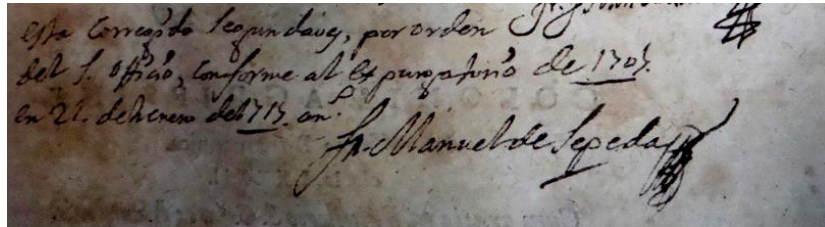 esta Corregido Segunda vez, por orden
del S. Officio, conforme al expurgatorio de 1707.
en 21. de henero del 1715. an.º
Fr. Manuel de Sepeda